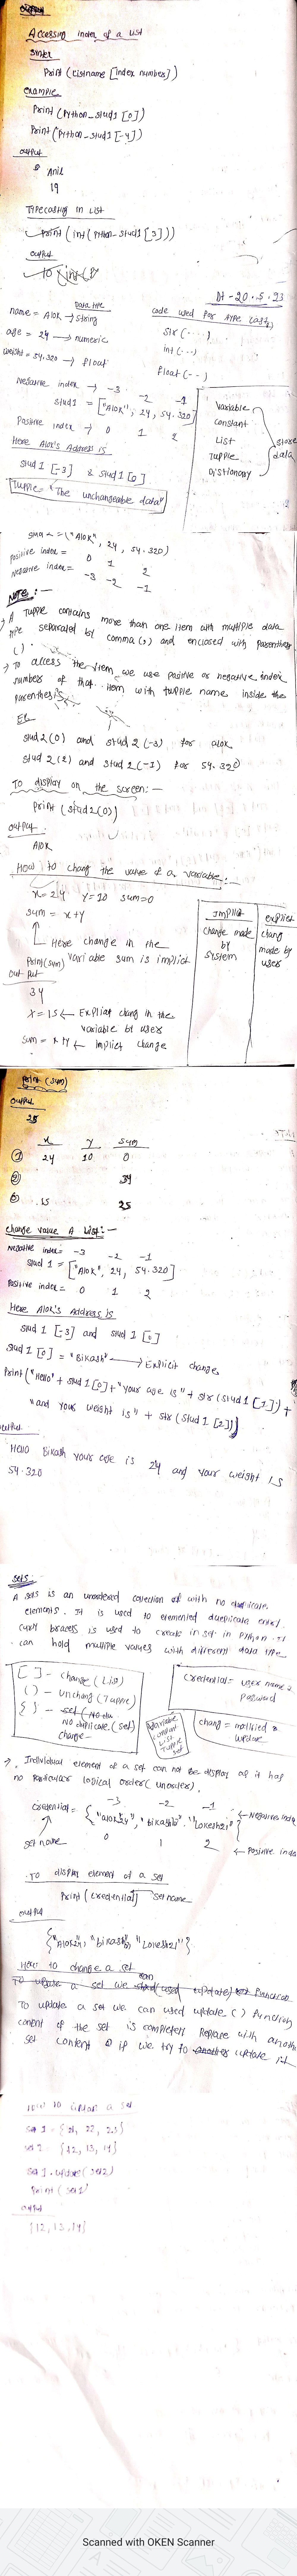 Accessing index of a List
Sintex
Print (Listname [index number])
Example
Print (Python_stud1 [0])
Print (Python_stud1 [-4])
output
Anil
19
Typecasting in List
Print (int (Python_stud1 [3]))
output
Dt - 20.5.23
Data type
name = Alok → string
age = 24 → numeric
weight = 54.320 → float
code used for type cast
str (....)
int (...)
float (..)
Negative index → -3 -2 -1
stud1 = ["Alok", 24, 54.320]
Positive index → 0 1 2
Here Alok's Address is
stud1 [-3] & stud1 [0]
Variable
Constant
List
Tupple
Distionary
store data
Tupple = "The unchangeable data"
("Alok", 24, 54.320)
positive index = 0 1 2
Negative index = -3 -2 -1
NOTE:-
A Tupple contains more than one item with multiple data
type separated by comma (,) and enclosed with parenthesis
( )
→ To access the item we use positive or negative index
number of that item with tupple name inside the
parenthesis
Ex
stud2(0) and stud2(-3) for alok
stud2(2) and stud2(-1) for 54.320
To display on the screen:-
print (stud2(0))
output
Alok
How to chang the value of a variable:-
x=24 y=10 sum=0
sum = x+y
Here change in the
variable sum is implicit
Print(sum)
out put
34
x = 15 ← Explicit chang in the
variable bt user
sum = x+y ← Implict change
Implicit
change made
by
system
explicit
chang
made by
user
Print (sum)
output
25
x y sum
① 24 10 0
② 34
③ 15 25
change value A List:-
Negative index= -3 -2 -1
stud 1 = ["Alok", 24, 54.320]
Positive index = 0 1 2
Here Alok's Address is
stud 1 [-3] and stud 1 [0]
stud 1 [0] = "Bikash" → Explicit change
Print ("Hello" + stud 1 [0] + "your age is" + str (stud 1 [1]) +
"and your weight is" + str (stud 1 [2]))
output
Hello Bikash your age is 24 and your weight is
54.320
Sets:
A sets is an unordered collection of with no duplicate
elements. It is used to elemented duplicate entry.
curly braces is used to create in set in Python. It
can hold multiple values with different data type
[ ] - change (List)
( ) - unchang (Tupple)
{ } - NO duplicate (set)
change -
variable
constant
List
Tupple
set
Credential = user name &
Password
chang = modified &
update
→ Individual element of a set can not be display as it has
no particular logical order (unorder).
-3 -2 -1 ← Negative index
credential = {"alok24", "bikash10", "Lokesh21"}
set name 0 1 2 ← Positive index
To display element of a set
Print (credential) set name
output
How to change a set
To update a set we can used update () function
content of the set is completely Replace with another
set content if we try to update it
How to update a set
set 1 = {21, 22, 23}
set 2 = {12, 13, 14}
set 1 . update (set2)
Print (set1)
output
{12, 13, 14}
Scanned with OKEN Scanner